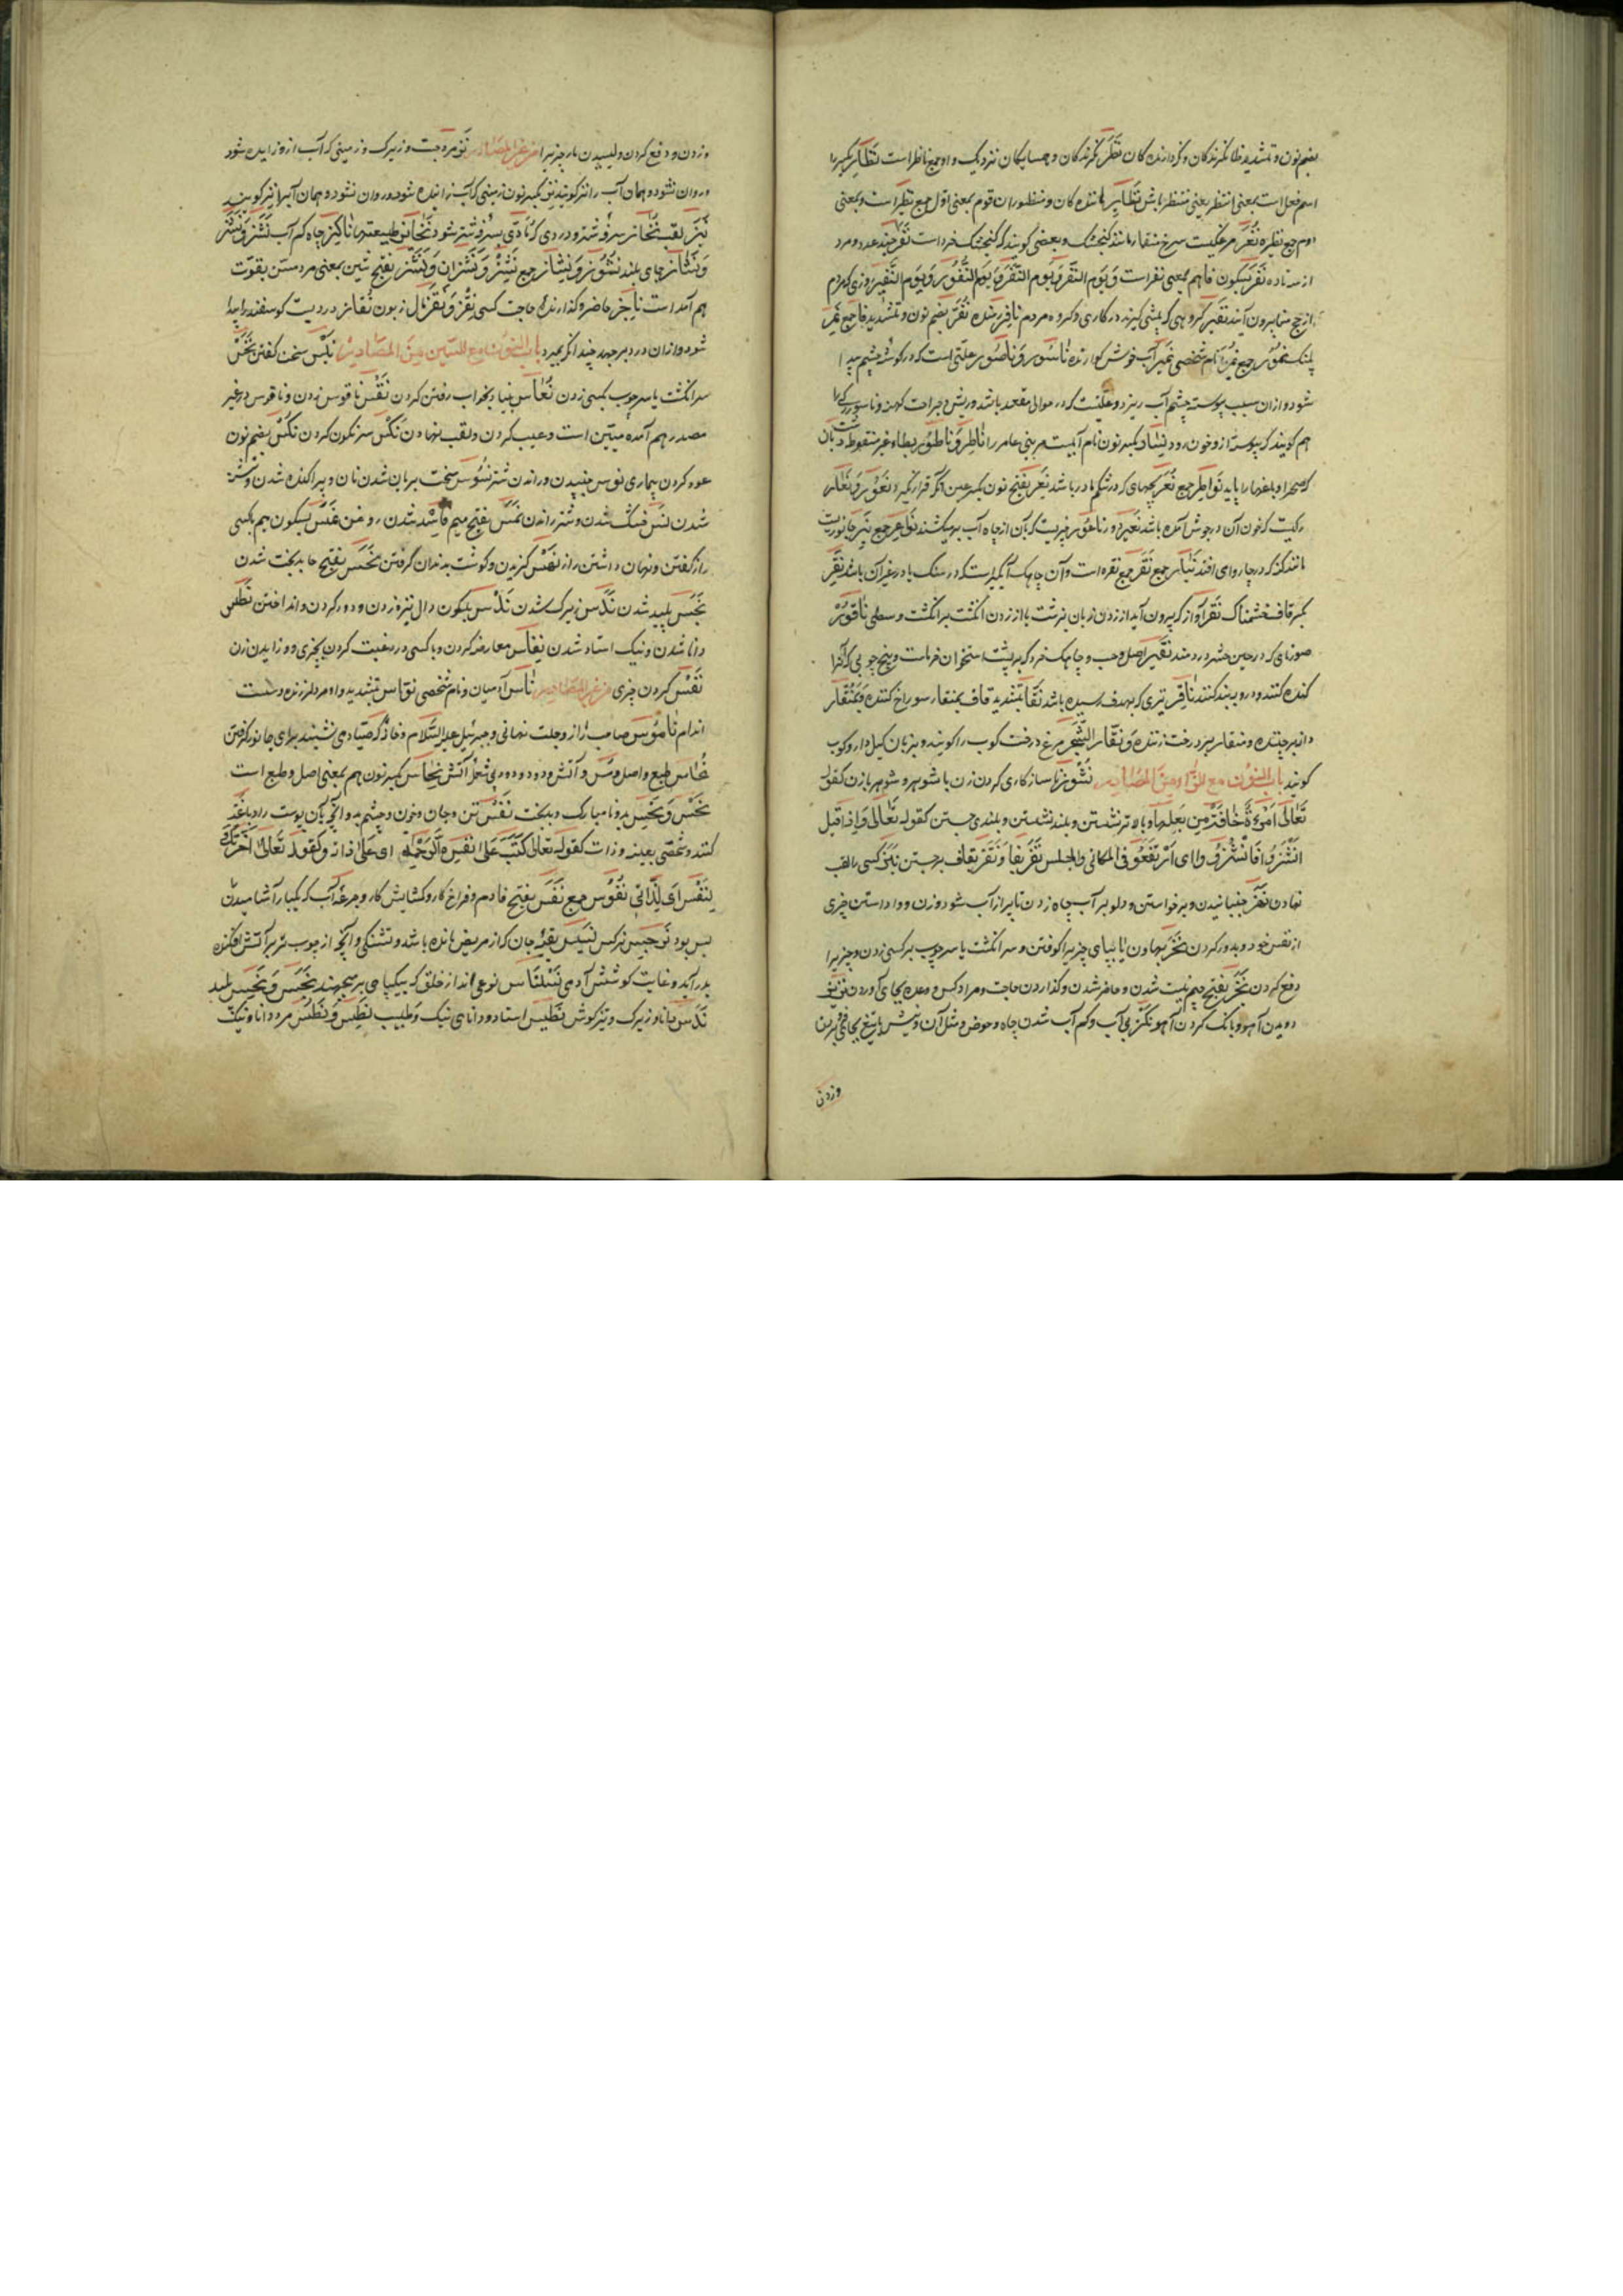 بضم نون و تشدید ظا نکرندکان و کردارنده کان نُظَّرْ نکرندکان و همسایکان نزدیک و او جمع ناظر است نَظَارِ بکسر را
اسم فعل است بمعنی انتظر یعنی منتظر باش نَظَایِر مانندە کان و منظوران قوم بمعنی اول جمع نظیر است و بمعنی
دوم جمع نظیره نُغَرْ مرغکیست سرخ منقار مانند کنجشک و بعضی کویند که کنجشک خرد است نَفَرْ چند عدد مرد
از سه تا ده نَفْرْ بسکون فا هم بمعنی نفر است وَ یَوْم النَّفْر وَ یَوْم النَّفَر وَ یَوْم النُّفُوْر وَ یَوْم النَّفِیْر روزی که مردم
از حج منا بیرون آیند نَفِیْر کروهی که پیشی کیرند در کاری و کروه مردم نافِرْ رمنده نُفَّرْ بضم نون و تشدید فا جمع نَمِر
پلنک نُمُوْر جمع نَمِر نام شخصی نَمِیْر آب خوش کوارنده نَاسُوْر وَ نَاصُوْر علتی است که در کوشه چشم پیدا
شود و از آن سبب پیوسته چشم آب ریزد و علتیست که در حوالی مقعد باشد و ریش و جراحت کهنه و ناسور رکی را
هم کویند که پیوسته از و خون رود نِسَار بکسر نون نام آبیست مر بنی عامر را نَاطِرْ وَ نَاطُوْر بطاء غیر منقوطه دشتبان
که صحرا و باغها را پاید نَوَاطِرْ جمع نُعَرْ بچهای که در شکم مادر باشد نَعِرْ بفتح نون و کسر عین آنکه قرار نکیرد نَعُوْر وَ نَعَّار
رکیست که خون آن در جوش آمده باشد نَعِیْر دور نَاعُوْر چیزیست که بآن از چاه آب برمیکشند نَوَاعِیْر جمع نِبْر جانوریست
مانند کنه که در چاروای افتد نِبَار جمع نُقَرْ جمع نقره است و آن چاهک آبکیر است که در سنک یا در غیر آن باشد نَقِرْ
بکسر قاف خشمناک نَقْر آواز که بیرون آید از زدن زبان بزشت یا از زدن انکشت بر انکشت وسطی نَاقُوْرْ
صورنای که در حین حشر در دمند نَقِیْر اصل و حسب و چاهک خرد که بر پشت استخوان خرماست و بیخ چوبی که آنرا
کنده کنند و درو نبیذ کنند نَاقِرْ تیری که بهدف رسیده باشد نَقَّار بتشدید قاف بمنقار سوراخ کننده و بمنقار
دانه برچیننده و منقار بر درخت زننده وَ نَقَّار الشَّجَر مرغ درخت کوب را کویند و بزبان کیل دارکوب
کویند باب النون مع الزاء من المصادر نُشُوْز ناسازکاری کردن زن با شوهر و شوهر با زن کقوله
تَعَالٰی اِمْرَءَةٌ خَافَتْ مِن بَعْلِهَا و بالاتر نشستن و بلند نشستن و بلندی جستن کقوله تَعَالٰی وَ اِذَا قِیْلَ
انْشُزُوْا فَانْشُزُوْا ای ارتفعوا فی المکانی و المجلس نَقْز یفا وَ نَقَز بقاف برجستن نَبْز کسی را لقب
نهادن نَهْز جنبانیدن و برخواستن و دلو بر آب چاه زدن تا پر از آب شود و زدن و واداشتن چیزی
از نفس خود و بدور کردن نَحْز بهاون یا بپای چیزیرا کوفتن و سر انکشت یا سر چوب بر کسی زدن و چیزیرا
دفع کردن نَجَز بفتح جیم نیست شدن و حاضر شدن و کذاردن حاجت و مراد کس و وعده بجای آوردن
دویدن آهو و بانک کردن آهو نَکْز بی آب و کم آب شدن چاه و حوض و مثل آن و نیش یا تیغ بجای فرو بردن
وزدن
وزدن و دفع کردن و لیسیدن مار چیزیرا من غیر المصادر نَزّ مرد چست و زیرک و زمینی که آب ازو زاییده شود
و روان نشود و همان آب را نز کویند نِزّ بکسر نون زمینی که آب زاییده شود و روان نشود و همان آبرا نیز کویند
نَبَز لقب نُحَاز سرفه شتر و دردی که تا دی سرفه شتر شود نَحَائِز طبیعتها نَاکِز چاه کم آب نَشْز وَ نَشَز
وَ نَشَاز جای بلند نُشُوْز وَ نِشَاز جمع نَشْز وَ نَشْزَان وَ نَشَز بفتح شین بمعنی مرد مسن بقوت
هم آمده است نَاجِز حاضر و کذارنده حاجت کسی نِقْز وَ نَقَز مال زبون نُقَاز دردیست کوسفند را پیدا
شود و از آن درد برجهد چندانکه بمیرد باب النون مع السین من المصادر نَبْس سخن کفتن نَخْس
سر انکشت یا سر چوب بکسی زدن نُعَاس پنیا و بخواب رفتن کردن نَقْس ناقوس زدن و ناقوس در غیر
مصدر هم آمده مبیّن است و عیب کردن و لقب نهادن نَکْس سرنکون کردن نُکْس بضم نون
عود کردن بیماری نوس جنبیدن و راندن شتر نُسُوْس سخت بریان شدن نان و پراکنده شدن و تشنه
شدن نَس خشک شدن و شتر راندن نَمَس بفتح میم فاسد شدن روغن نَمْس بسکون میم بکسی
راز کفتن و نهان داشتن راز نَهْس کزیدن و کوشت بدندان کرفتن نَحَس بفتح حا بدبخت شدن
نَجَس پلید شدن نَدَس زیرک شدن نَدْس بسکون دال نیزه زدن و دور کردن و انداختن نَطَس
دانا شدن و نیک استاد شدن نِفَاس معارضه کردن و با کسی در رغبت کردن بچیزی و زاییدن زن
نَفْس کردن چیزی من غیر المصادر نَاس آدمیان و نام شخصی نوّاس بتشدید واو مرد لرزنده و سست
اندام نَامُوْس صاحب راز و حیلت نهانی و جبرئیل علیه السلام و خانه که صیاد می نشیند برای جانور کرفتن
نُحَاس طبع و اصل و مس و آتش و دود و دود بی شعله آتش نِحَاس بکسر نون هم بمعنی اصل و طبع است
نَحْس وَ نَحِیْس بد و نامبارک و بدبخت نَفْس تن و جان و خون و چشم بد و آنچه بآن پوست را دباغت
کنند و شخصی بعینه و ذات کقوله تعالی کَتَبَ عَلٰی نَفْسِهِ الرَّحْمَة ای علی ذاته و کقوله تعالی
لِنَفْسِی ای لِذَاتِی نُفُوْس جمع نَفَس بفتح فا دم و فراخ کار و کشایش کار و جرعه آب که یکبار آشامیدن
بس بود نَرْجِس نرکس نَسِیْس بقیه جان که از مریض مانده باشد و تشنکی و آنچه از چوب تر بر آتش افکنده
بدر آید و غایت کوشش آدمی نَسْنَاس نوعی‌اند از خلق که بیکپای برمیجهند نَجَس وَ نَجِیْس پلید
نَدَس دانا و زیرک و تیزکوش نِطِّیْس استاد و دانای نیک و طبیب نَطِس وَ نَطُس مرد دانا و نیک